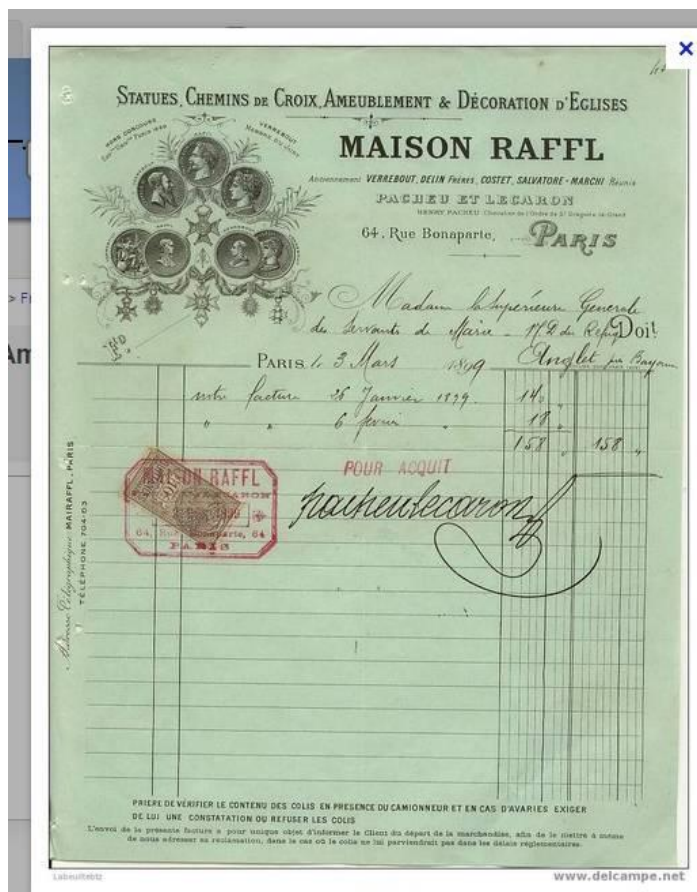 STATUES, CHEMINS DE CROIX, AMEUBLEMENT & DÉCORATION D'EGLISES
HORS CONCOURS
VERREBOUT
MEMBRE DU JURY
MAISON RAFFL
Anciennement VERREBOUT, DELIN FRÈRES, COSTET, SALVATORE-MARCHI Réunis
PACHEU ET LECARON
HENRY PACHEU Chevalier de l'Ordre de St Grégoire le Grand
64, Rue Bonaparte, PARIS
Madame la Supérieure Generale
des Servantes de Marie - N.D. du Refuge Doit
Anglet par Bayonne
PARIS, le 3 Mars 1899
notre facture 26 Janvier 1899 140 "
" " 6 fevrier " 18 "
158 " 158 "
MAISON RAFFL
64, Rue Bonaparte, 64
PARIS
POUR ACQUIT
Pacheu Lecaron
Adresse Télégraphique MAIRAFFL-PARIS
TÉLÉPHONE 704-03
PRIÈRE DE VÉRIFIER LE CONTENU DES COLIS EN PRÉSENCE DU CAMIONNEUR ET EN CAS D'AVARIES EXIGER
DE LUI UNE CONSTATATION OU REFUSER LES COLIS
L'envoi de la présente facture a pour unique objet d'informer le Client du départ de la marchandise, afin de le mettre à même
de nous adresser sa réclamation, dans le cas où le colis ne lui parviendrait pas dans les délais réglementaires.
Labeuitebtz
www.delcampe.net